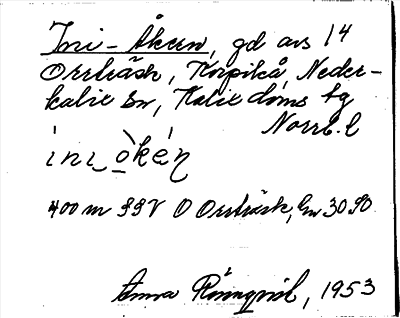 Ini-Åkern, gd avs 14
Orrträsk, Korpikå, Neder-
kalix sn, Kalix doms tg
Norrb. l
ini ̬òkén
400 m SSV O Orrträsk, bn 30 SO
Anna Rönnqvist, 1953